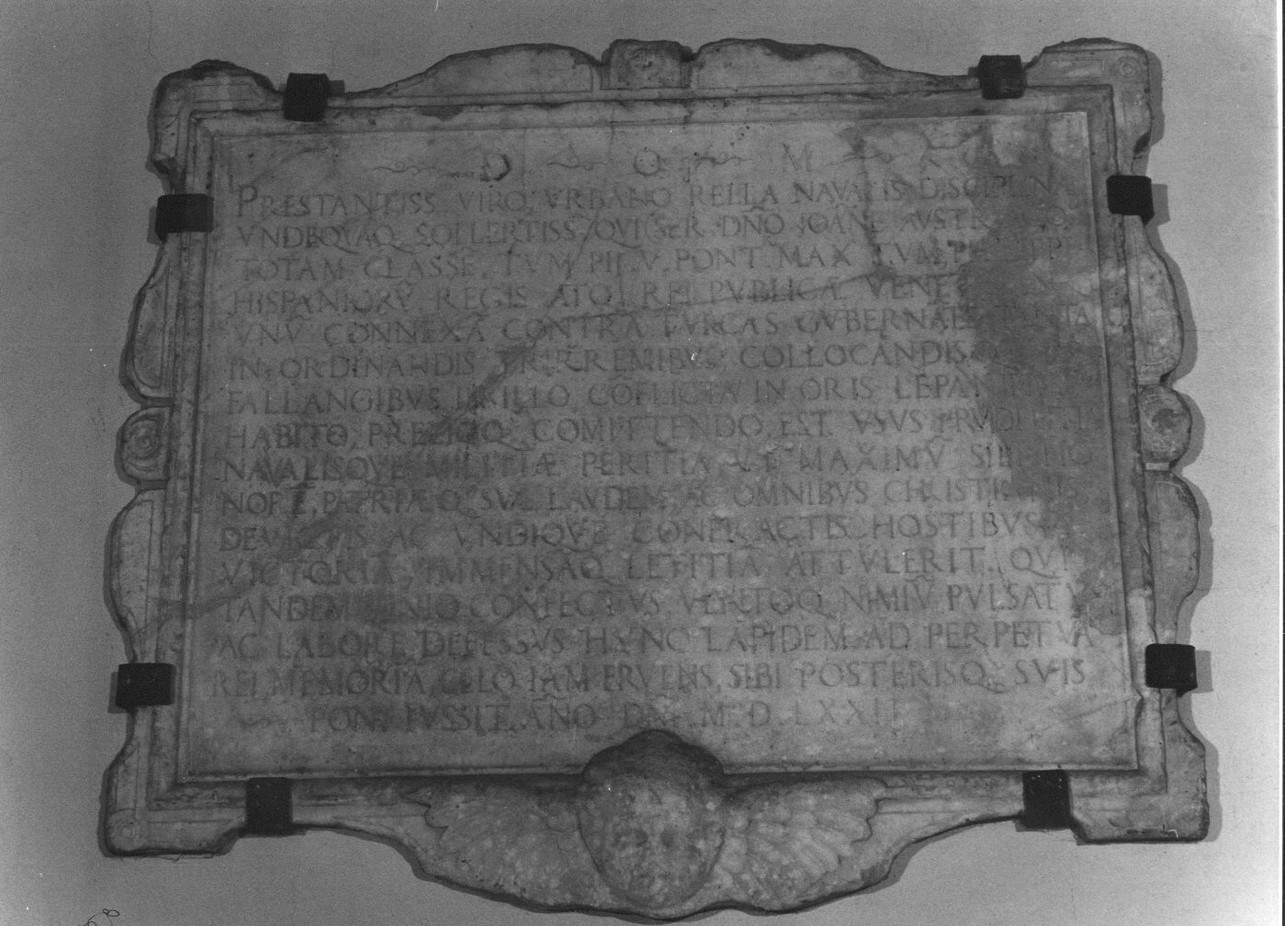 D O M
PRESTANTISS VIRO, VRBANO RELLA NAVALIS DISCIPLINA
VNDEQVAQ SOLLERTISS QVI SER DNO IOANE AVSTRIACO
TOTAM CLASSE, TVM PII V PONT MAX TVM
HISPANIORV REGIS ATQ REI PVBLICÆ
VNV CONNEXA CONTRA TVRCAS GVBERNATE
IN ORDINANDIS TRIREMIBVS COLLOCANDIS
FALLANGIBVS IN ILLO COFLICTV IN ORIS
HABITO, PRELIOQ COMITTENDO EST VSVS
NAVALISQVE MILITIÆ PERITIA VT MAXIMV
PATRIÆQ SVE LAVDEM, AC OMNIBVS
DEVICTIS AC VNDIQVE CONFRACTIS HOSTIBVS
VICTORIA, IMMENSAQ LETITIA ATTVLERIT, QVI
TANDEM SENIO CONFECTVS NIMIV
AC LABORE DEFESSVS HVNC LAPIDEM AD PERPETVA
REI MEMORIA, CELO IAM SIBI POSTERISQ SVIS
PONI IVSSIT ANO DNI M D LXXII